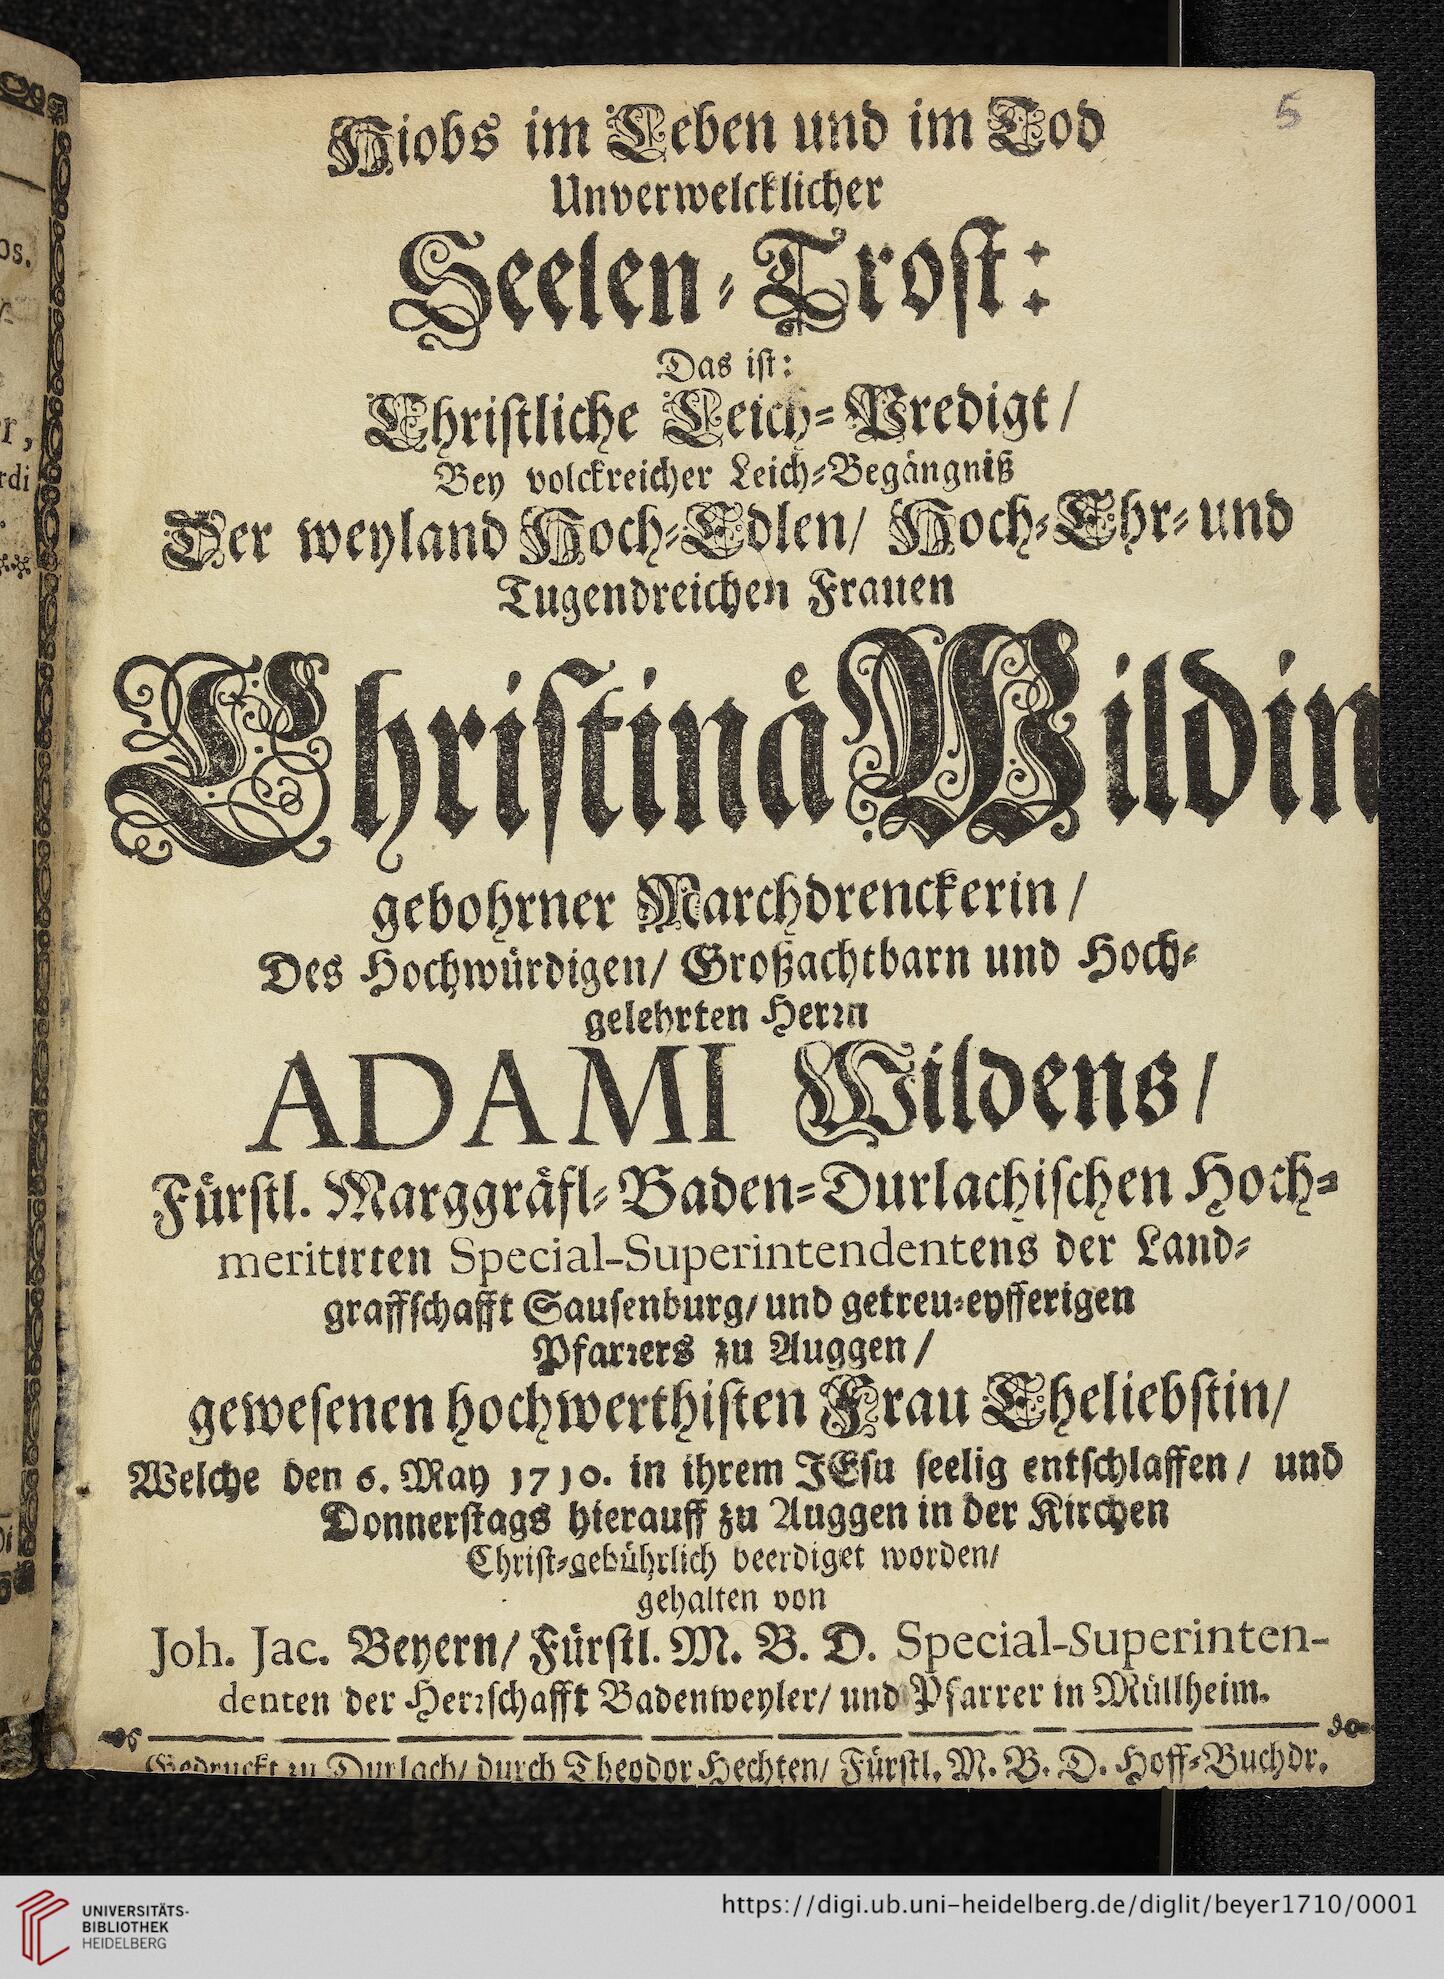 5
Hiobs im Leben und im Tod
Unverwelcklicher
Seelen-Trost:
Das ist:
Christliche Leich-Predigt/
Bey volckreicher Leich-Begängniß
Der weyland Hoch-Edlen/ Hoch-Ehr- und
Tugendreichen Frauen
Christinä Wildin
gebohrner Marchdrenckerin/
Des Hochwürdigen/ Großachtbarn und Hoch-
gelehrten Herrn
ADAMI Wildens/
Fürstl. Marggräfl-Baden-Durlachischen Hoch-
meritirten Special-Superintendentens der Land-
graffschafft Sausenburg/ und getreu-eyfferigen
Pfarrers zu Auggen/
gewesenen hochwerthisten Frau Eheliebstin/
Welche den 6. May 1710. in ihrem JEsu seelig entschlaffen/ und
Donnerstags hierauff zu Auggen in der Kirchen
Christ-gebührlich beerdiget worden/
gehalten von
Joh. Jac. Beyern/ Fürstl. M. B. D. Special-Superinten-
denten der Herrschafft Badenweyler/ und Pfarrer in Müllheim.
Gedruckt zu Durlach/ durch Theodor Hechten/ Fürstl. M. B. D. Hoff-Buchdr.
UNIVERSITÄTS-
BIBLIOTHEK
HEIDELBERG
https://digi.ub.uni-heidelberg.de/diglit/beyer1710/0001